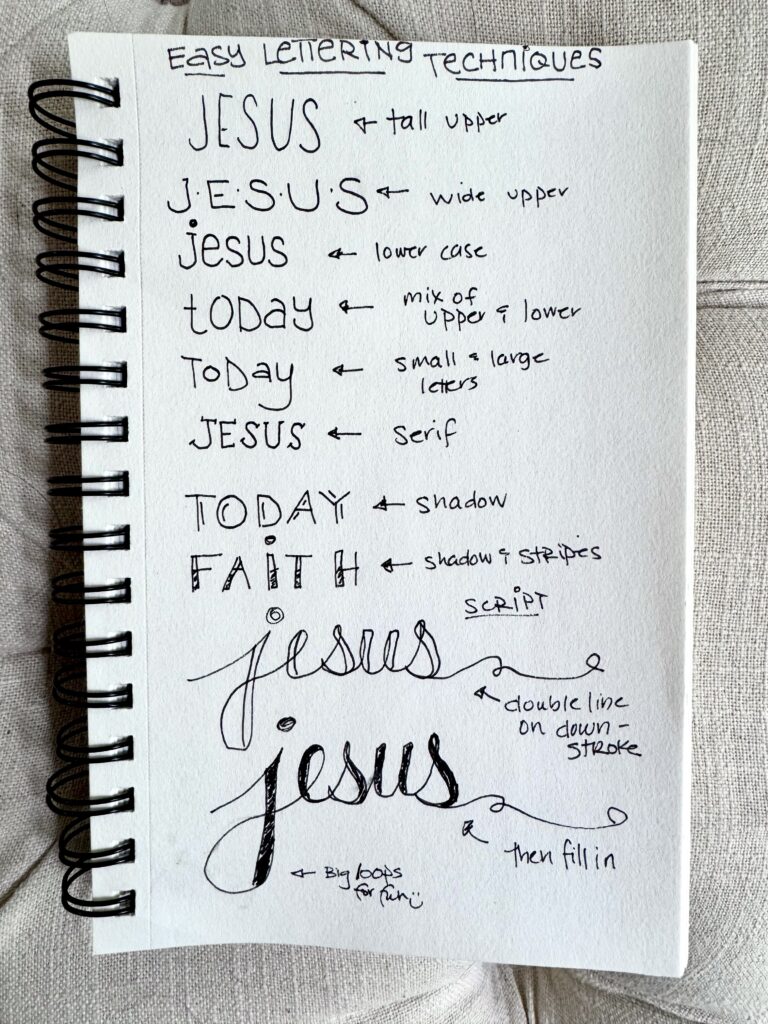 EASY LETTERING TECHNIQUES
JESUS ← tall upper
J·E·S·U·S ← wide upper
jesus ← lower case
tODay ← mix of
upper & lower
ToDay ← small & large
letters
JESUS ← serif
TODAY ← shadow
FAiTH ← shadow & STRiPES
SCRiPT
jesus
← double line
on down-
STROKE
jesus
← then fill in
← Big loops
for fun☺